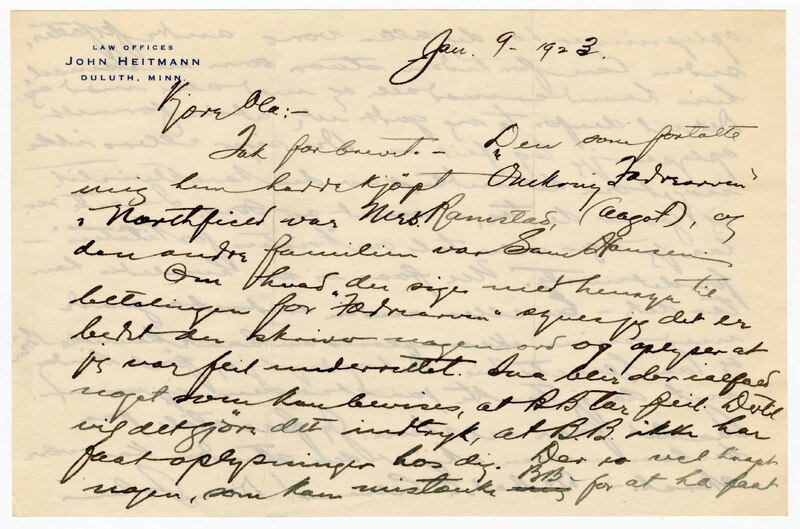 LAW OFFICES
JOHN HEITMANN
DULUTH, MINN.
Jan. 9 - 1923.
Kjære Ola:-
Tak for brevet. - Den som fortalte
mig hun hadde kjöpt "Omkring Fædrearven"
i Northfield var Mrs. Ramstad, (Aagot), og
den andre familien var Sam Hansen
Om hvad der siges med hensyn til
betalingen for "Fædrearven" synes jeg det er
bedst der skrives nogen ord og oplyser at
jeg var feil underrettet. Saa blir der ialfald
noget som kan bevises, at BB tar feil. Dertil
vil det gjöre det indtryk, at B.B. ikke har
faat oplysninger hos dig. Der er vel knapt
nogen, som kan mistænke BB for at ha faat